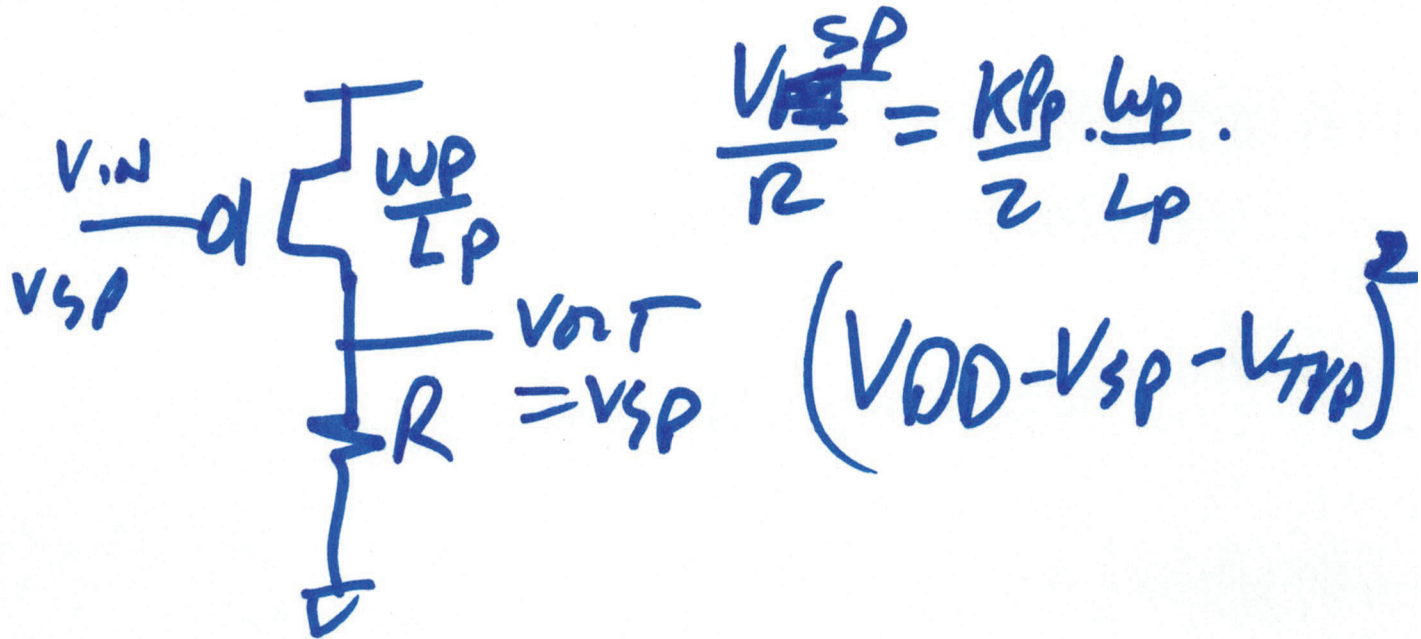 VIN
VSP
WP
LP
VOUT
=VSP
R
VSP/R = KPp/2 · Wp/Lp ·
(VDD-VSP-VTHP)²